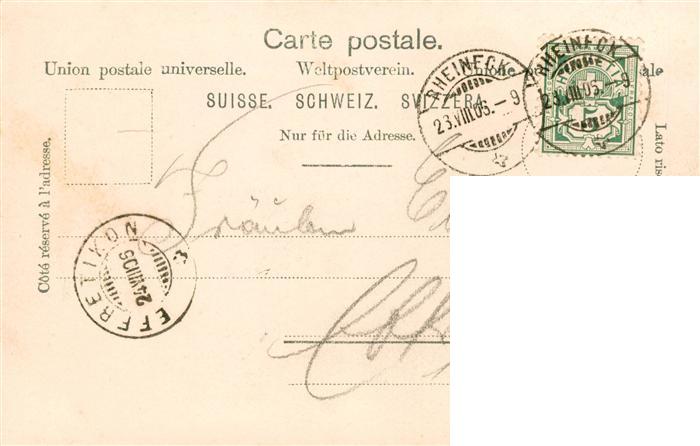 Carte postale.
Union postale universelle. Weltpostverein. Unione
SUISSE. SCHWEIZ. SVIZZERA.
Nur für die Adresse.
Côté réservé à l'adresse.
Lato ris
RHEINECK
23.VIII.05.-9
RHEINECK
23.VIII.05.-9
Fräulein
EFFRETIKON
24.VIII.05